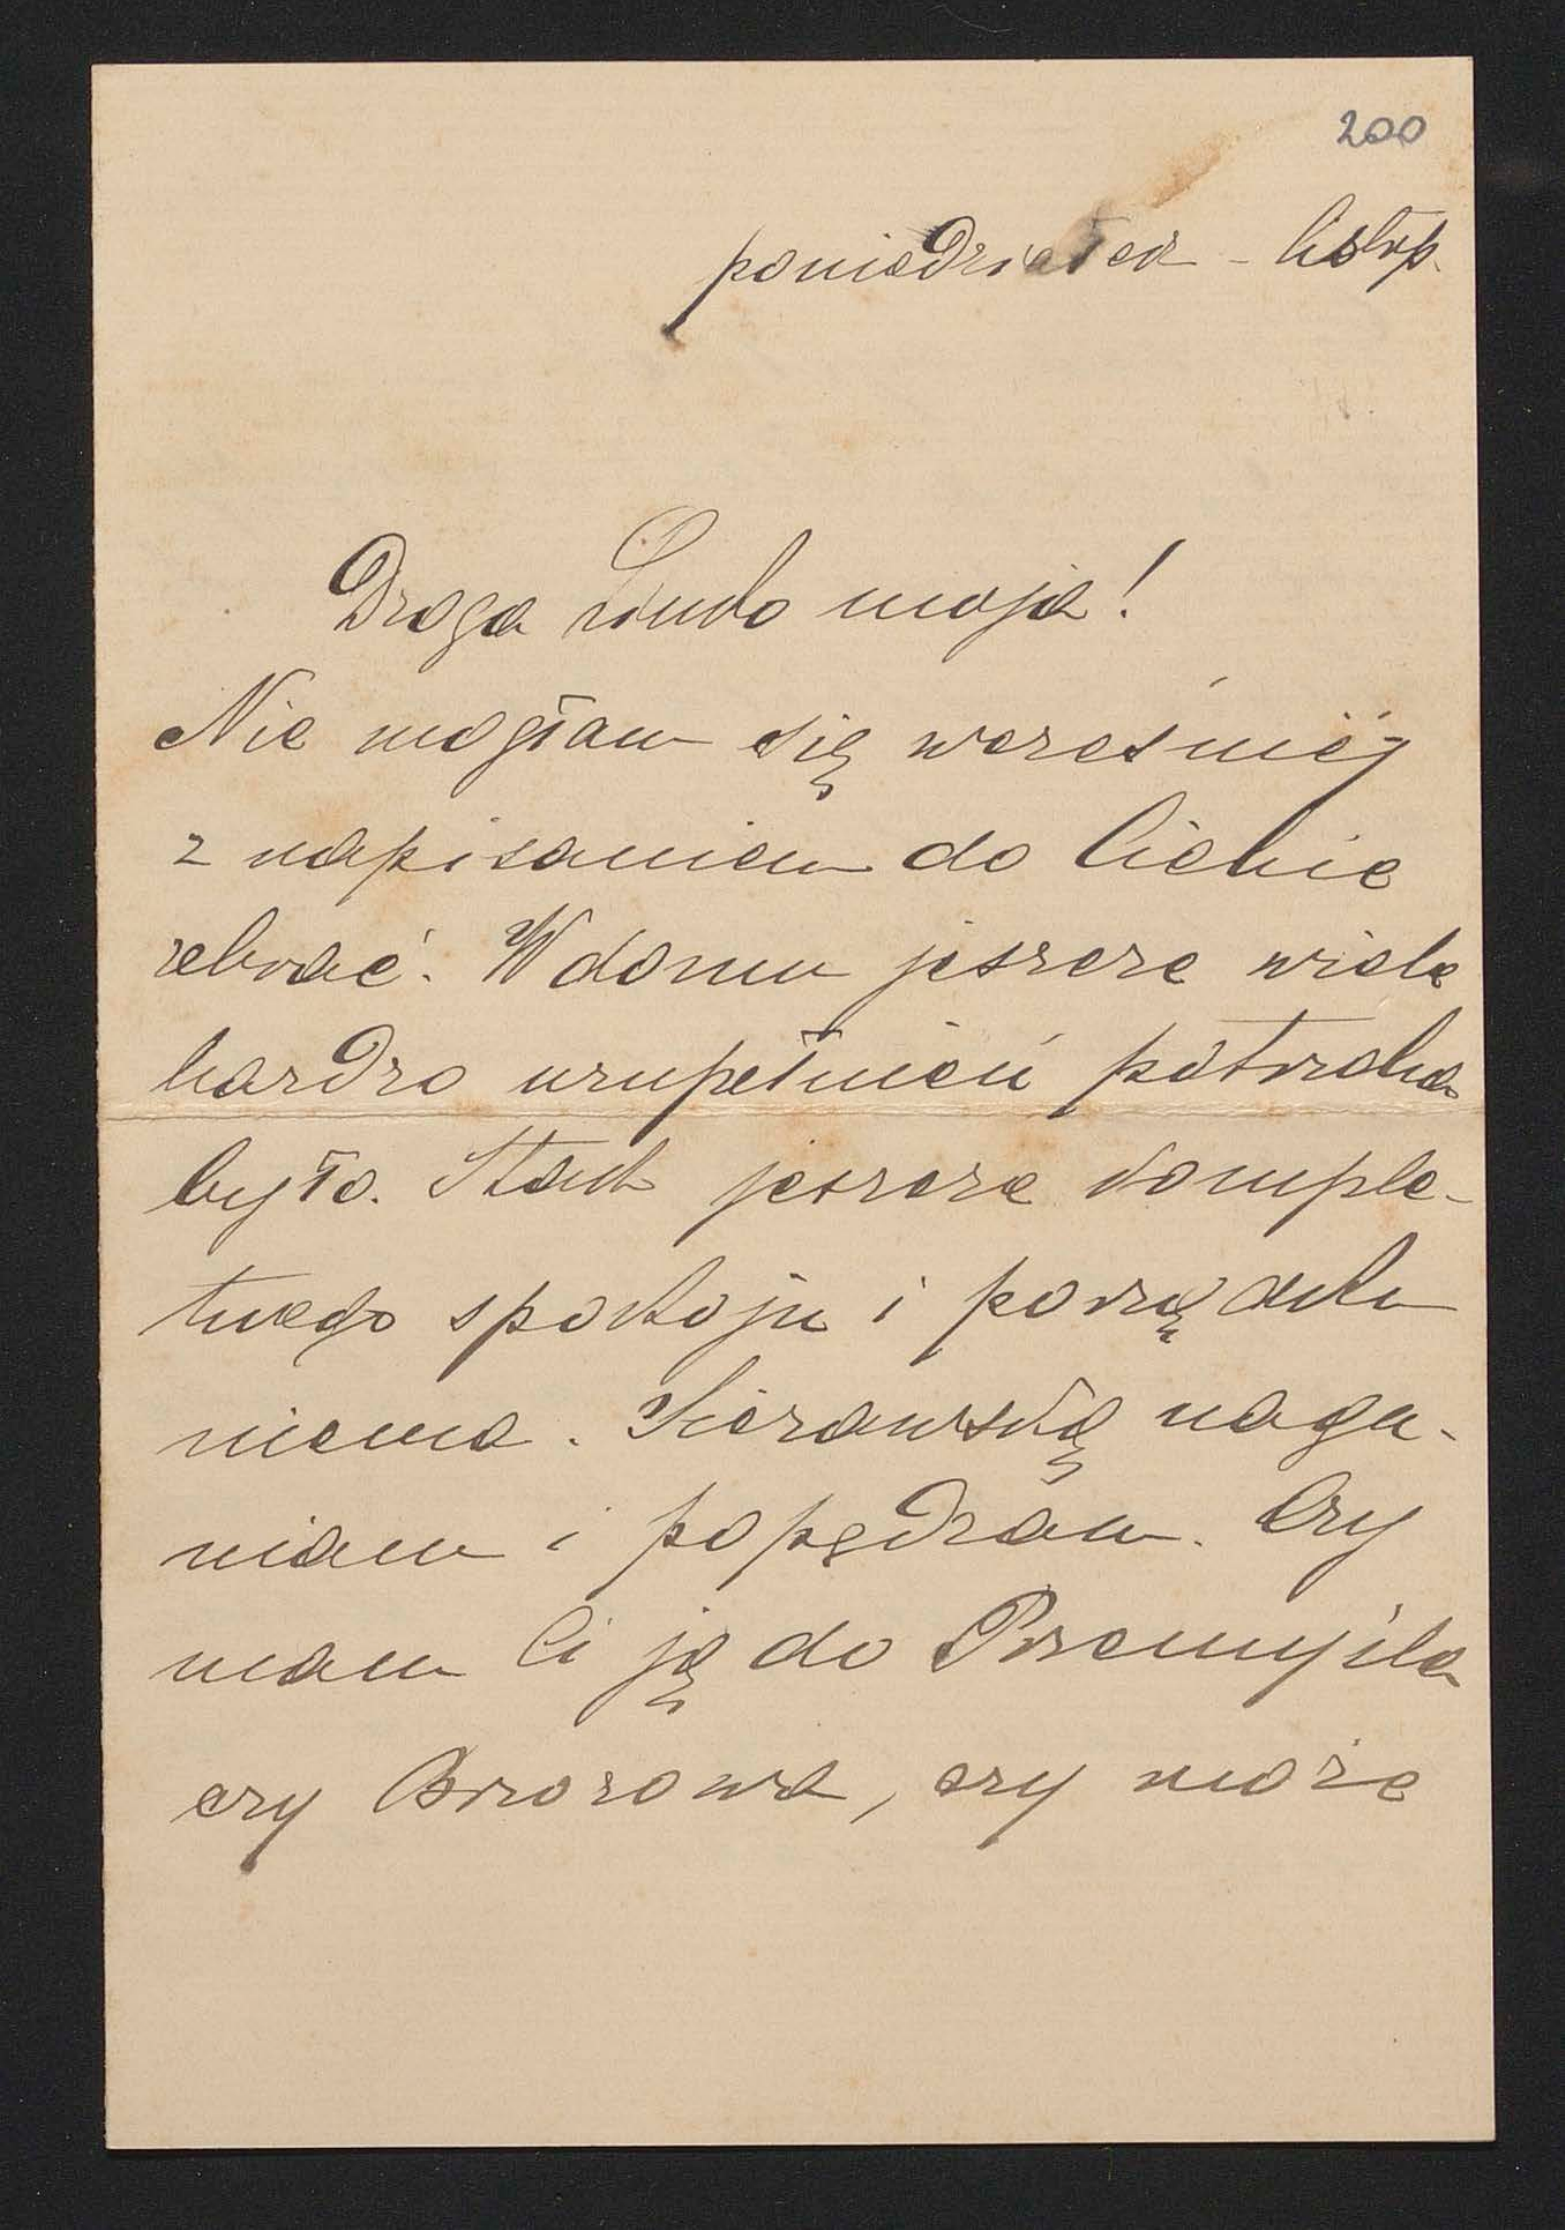 200
poniedziałek – listop.
Droga moja!
Nie mogłam się wcześniéj
z napisaniem do Ciebie
zebrać. W domu jeszcze wiele
bardzo uzupełnień potrzeba
było. Stąd jeszcze komple-
tnego spokoju i porządku
niema. Sierawską naga-
niam i popędzam. Czy
mam Ci ją do Przemyśla
czy Brzozowa, czy może